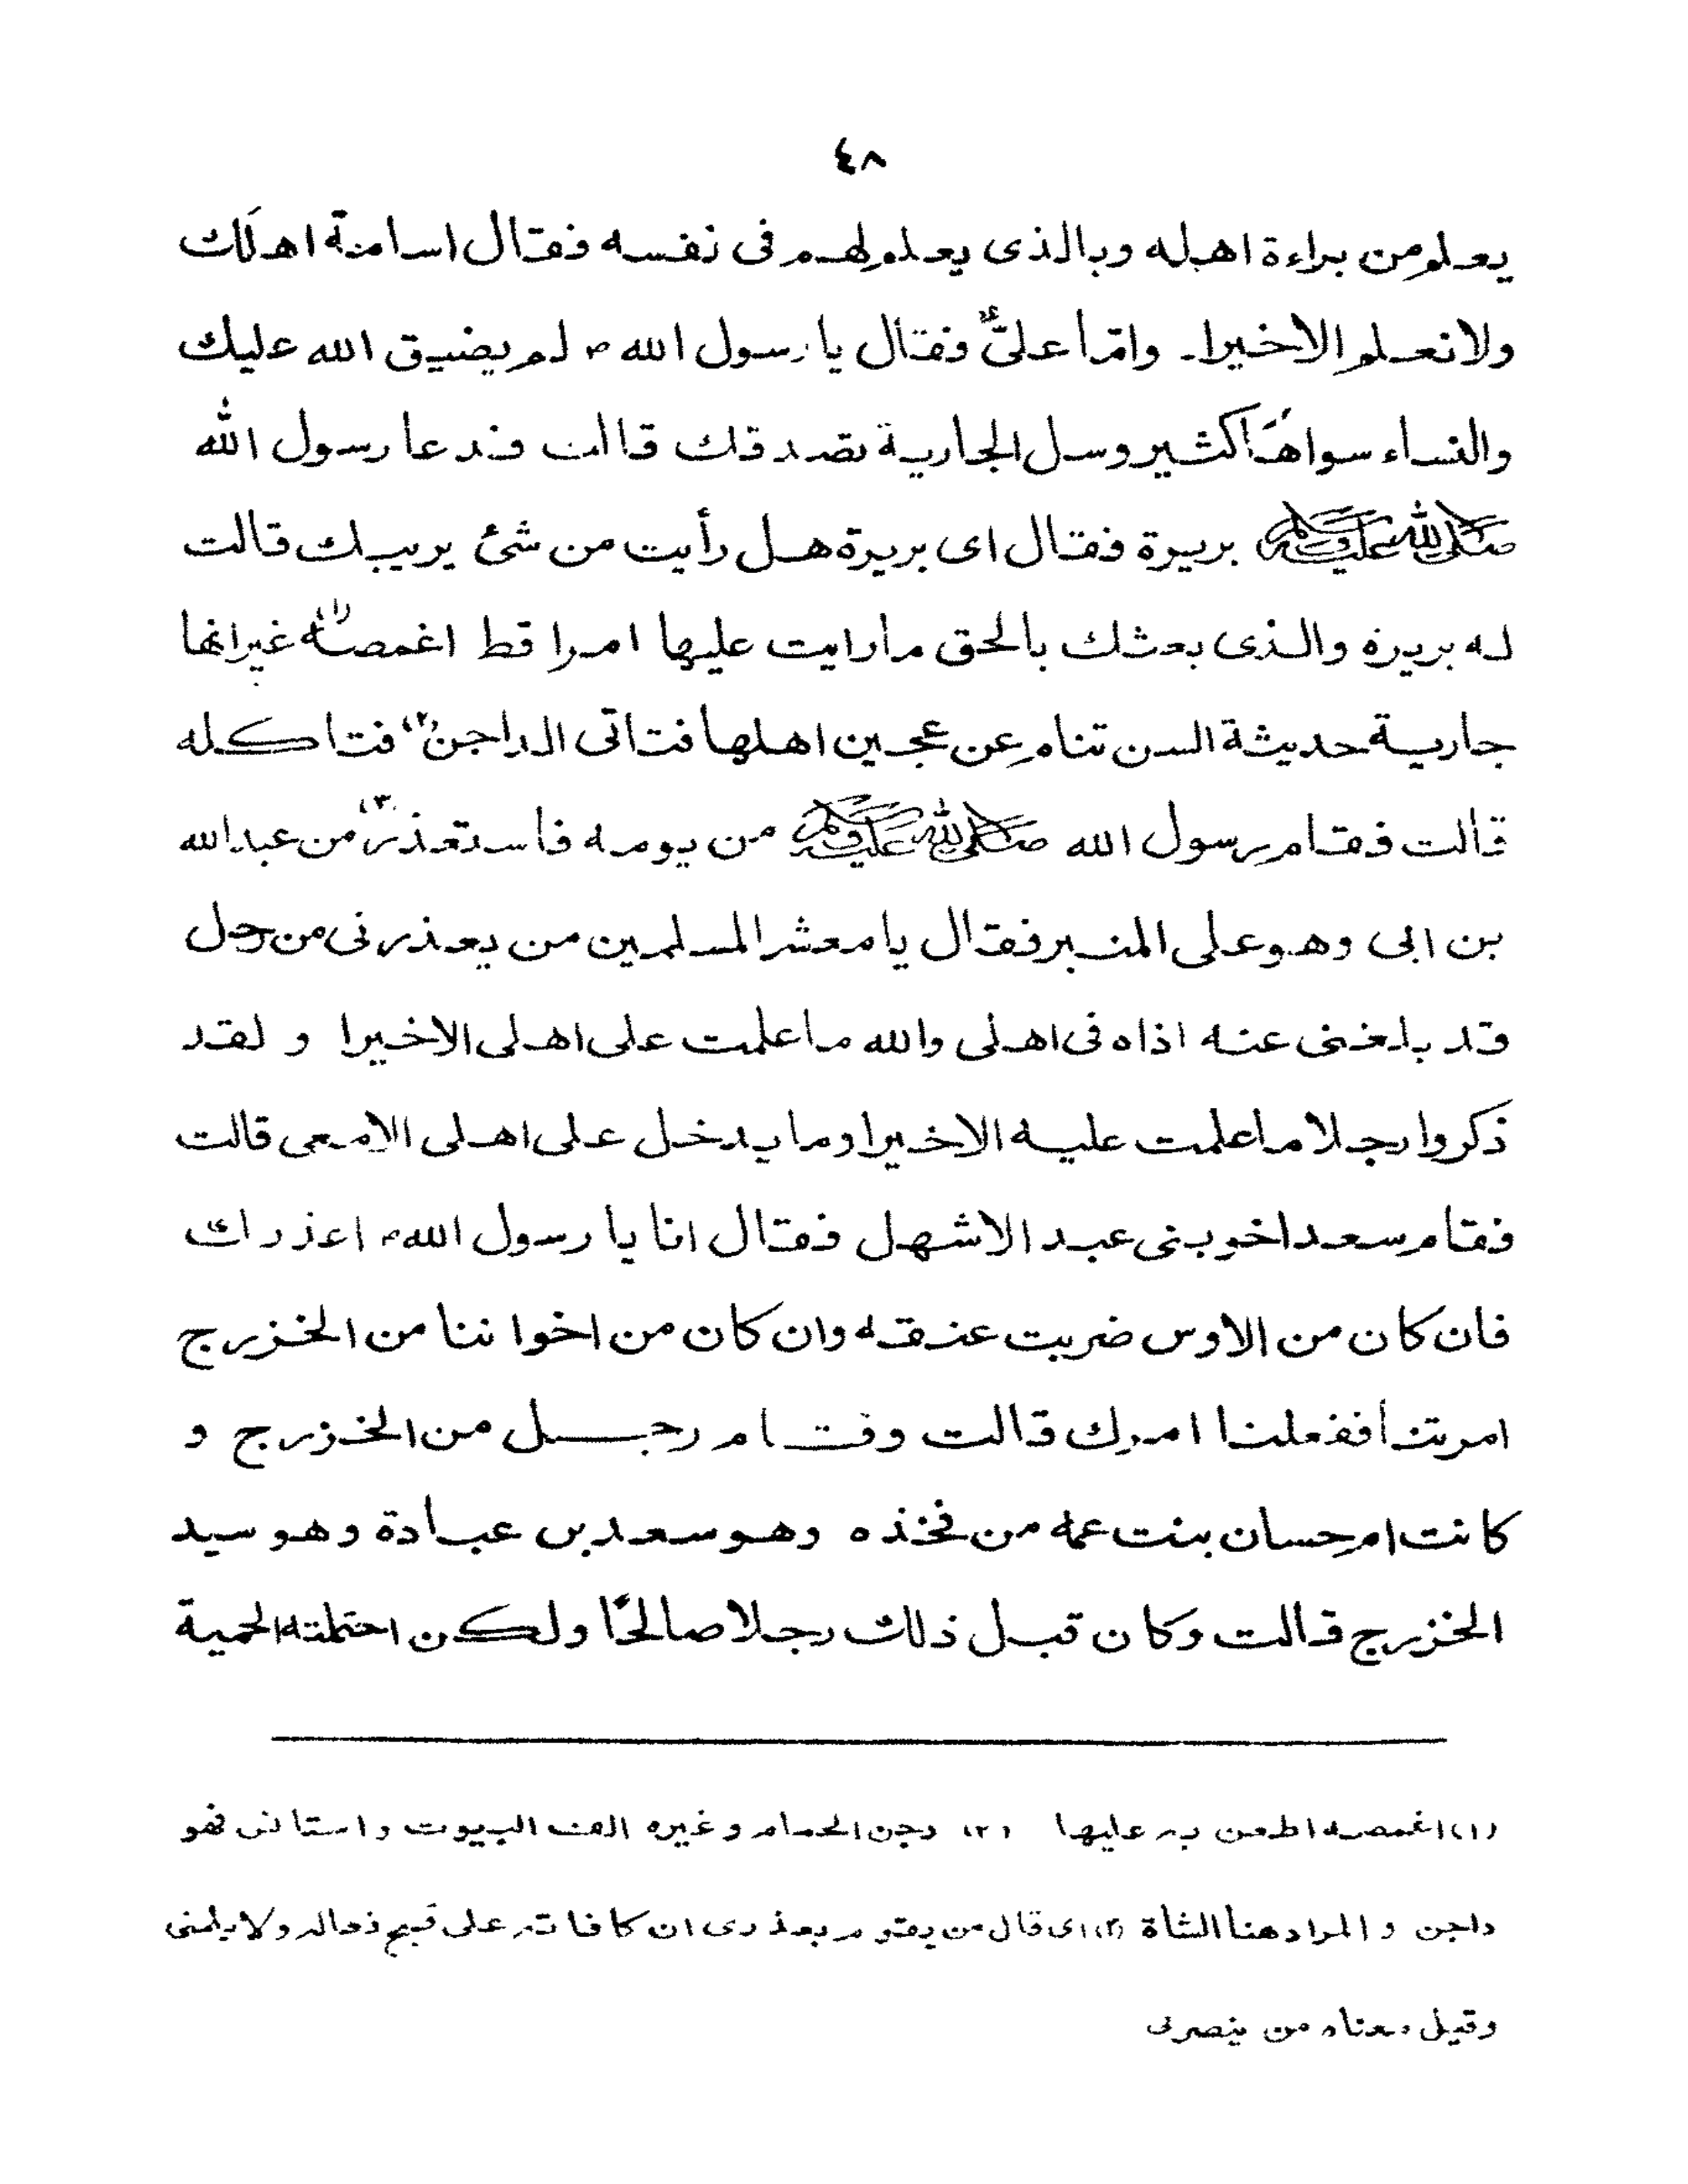 ٤٨
يعلم من براءة اهله وبالذى يعلم لهم فى نفسه فقال اسامة اهلَك
ولا نعلم الا خيرا۔ وامّا علىٌّ فقال يا رسول الله ؐ لم يضيق الله عليك
والنساء سواهَا كثير وسل الجارية تصدقك قالت فدعا رسول الله
صلى الله عليه وسلم بريرة فقال اى بريرة هل رأيت من شئ يريبك قالت
له بريرة والذى بعثك بالحق مارايت عليها امرا قط اغمصه (١) غيرانها
جارية حديثة السن تنام عن عجين اهلها فتاتى الداجن (٢) فتاكله
قالت فقام رسول الله صلى الله عليه وسلم من يومه فاستعذر (٣) من عبدالله
بن ابى وهو على المنبر فقال يا معشر المسلمين من يعذرنى من رجل
قد بلغنى عنه اذاه فى اهلى والله ما علمت على اهلى الا خيرا و لقد
ذكروا رجلا ما علمت عليه الا خيرا وما يدخل على اهلى الا معى قالت
فقام سعد اخو بنى عبد الاشهل فقال انا يا رسول الله ؐ اعذرك
فان كان من الاوس ضربت عنقه وان كان من اخواننا من الخزرج
امرتنا ففعلنا امرك قالت وقام رجل من الخزرج و
كانت ام حسان بنت عمه من فخذه وهو سعد بن عبادة وهو سيد
الخزرج قالت وكان قبل ذلك رجلا صالحًا ولكن احتملته الحمية
(١) اغمصه اطعن به عليها (٢) دجن الحمام وغيره الف البيوت واستانس فهو
داجن و المراد هنا الشاة (٣) اى قال من يقوم بعذرى ان كافاته على قبيح فعاله ولا يلمنى
وقيل معناه من ينصرنى